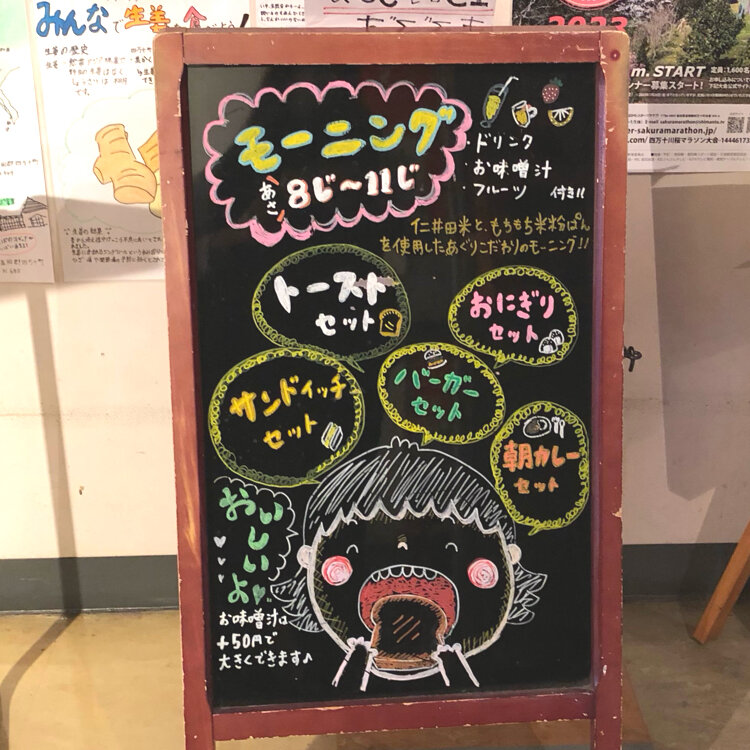 みんなで生姜を食べよう!
生姜の歴史
2023
m. START
定員:1,600名
ンナー募集スタート!
er-sakuramarathon.jp/
.com/四万十川桜マラソン大会
モーニング
あさ 8じ〜11じ
・ドリンク
・お味噌汁
・フルーツ 付き!!
仁井田米と、もちもち米粉ぱん
を使用したあぐりこだわりのモーニング!!
トースト
セット
おにぎり
セット
サンドイッチ
セット
バーガー
セット
朝カレー
セット
おいしいよ
お味噌汁は
+50円で
大きくできます♪